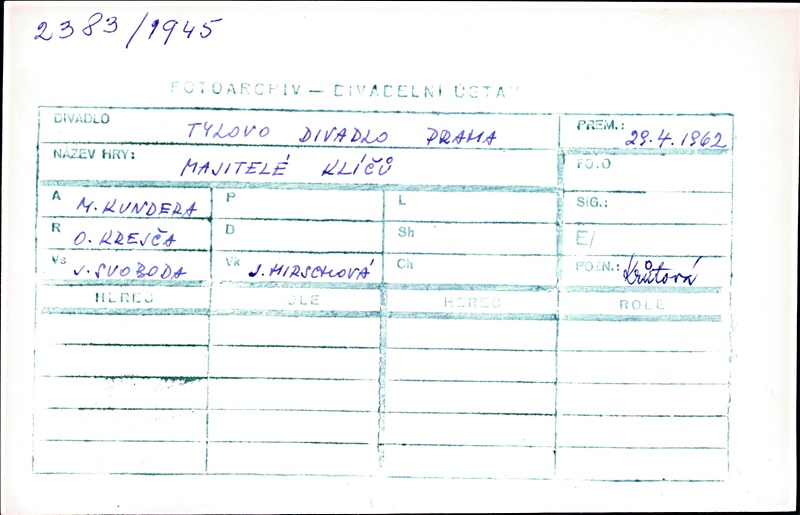 2383/1945
FOTOARCHIV — DIVADELNÍ ÚSTAV
DIVADLO TYLOVO DIVADLO PRAHA PREM.: 29.4.1962
NÁZEV HRY: MAJITELÉ KLÍČŮ FOTO
A M. KUNDERA P L SIG.:
R O. KREJČA D Sh E/
Vs J. SVOBODA Vk J. HIRSCHOVÁ Ch POZN.: Krůtová
HEREC ROLE HEREC ROLE